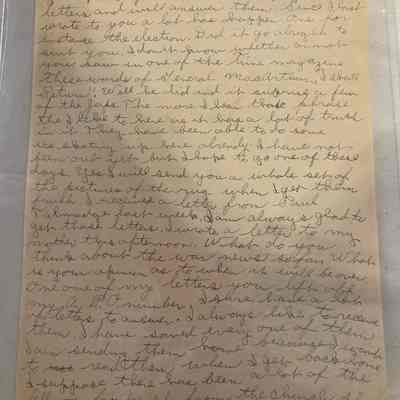 letters and will answer them. Since I last
wrote to you a lot has happen. One for
instance the election. Did it go alright to
suit you. I don't know whether or not
you saw in one of the time magazine
these words of General MacArthur, I shall
Return! Well he did and it surprise a few
of the Japs. The more I hear that phrase
the I like to here as it has a lot of truth
in it. They have been able to do some
ice skating up here already. I have not
been out yet but I hope to go one of these
days. Yes I will send you a whole set of
the pictures of the when I get them
I received a letter from Paul
Talmadge last week. I am always glad to
get those letters. I wrote a letter to my
mother this afternoon. What do you
think about the war news so far. What
is your opinion as to when it will be over
One one of my letters you left off
my A.P.O number. I sure have a lot
of letters to answer. I always like to receive
them. I have saved every one of them
I am sending them home because I want
to read them when I get back home
I suppose there has been a lot of the
from the church.